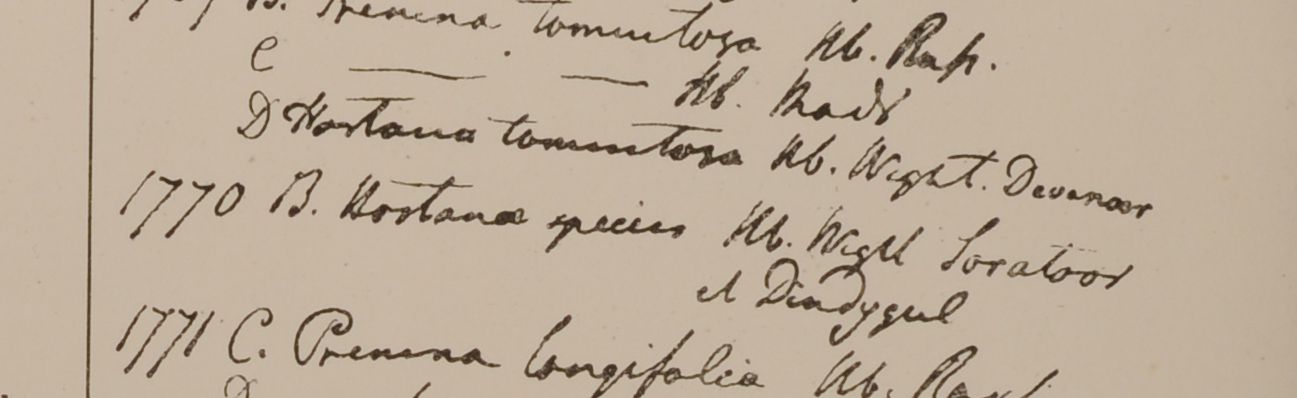 B. Premna tomentosa Hb. Rup.
C ——— —— Hb. Madr
D Hostana tomentosa Hb. Wight. Devanoor
1770 B. Hostanæ species Hb. Wight Soratoor
et Dindygul
1771 C. Premna longifolia Hb. Roxb